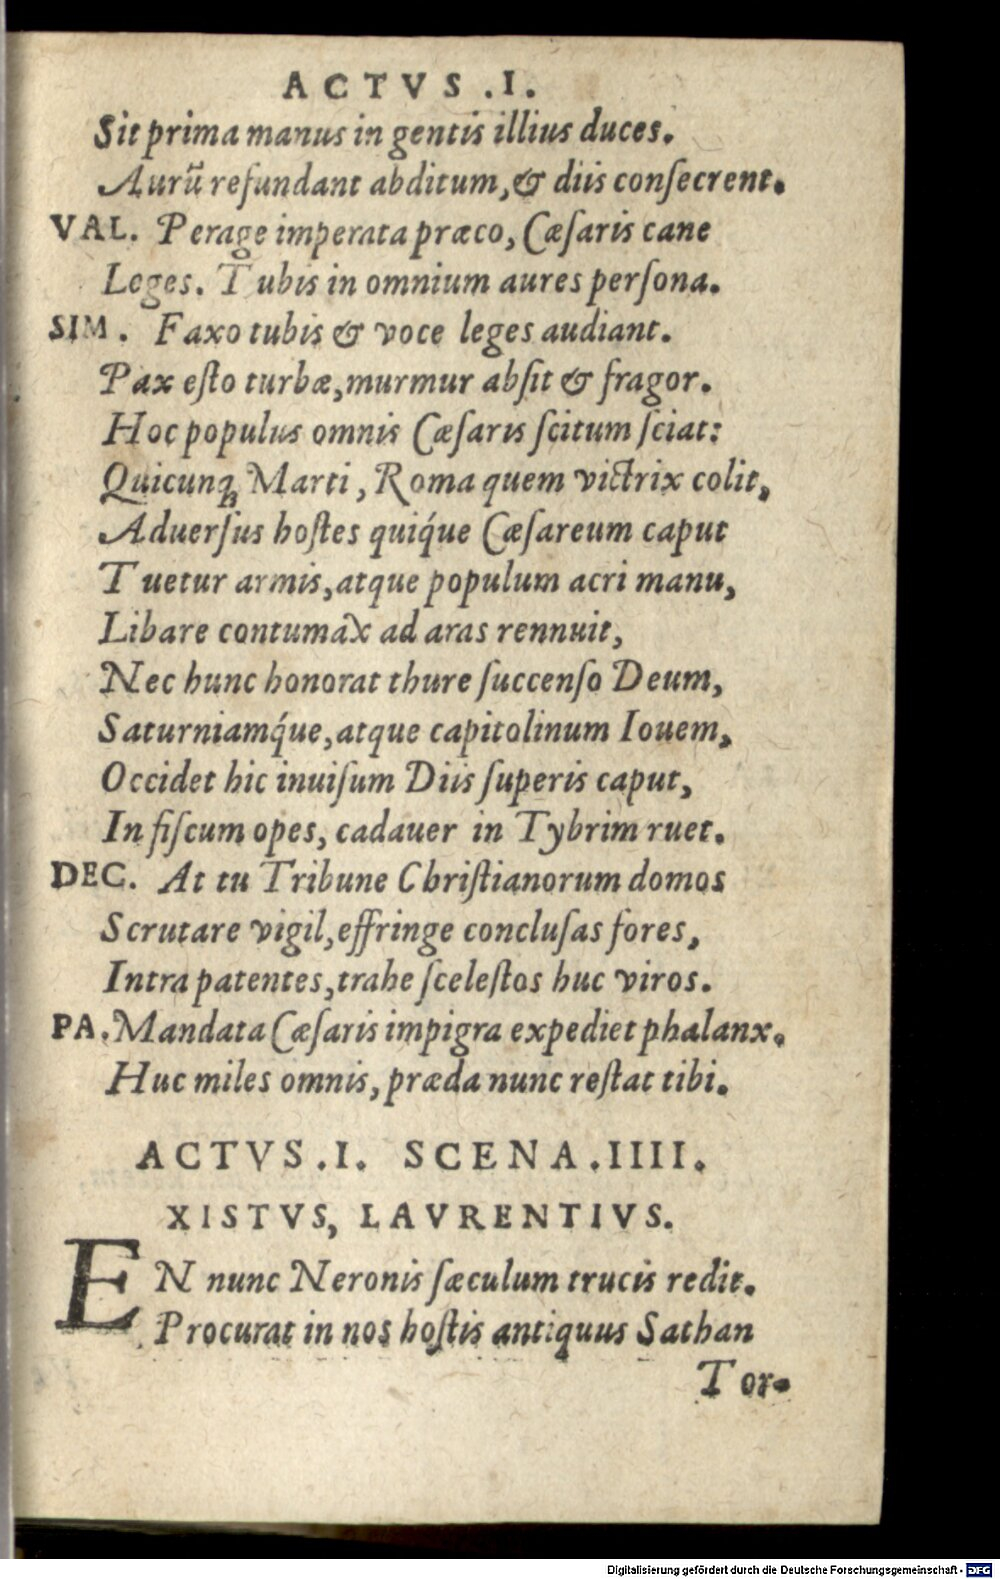 ACTVS .I.
Sit prima manus in gentis illius duces.
Aurũ refundant abditum, & diis conſecrent.
VAL. Perage imperata præco, Cæſaris cane
Leges. Tubis in omnium aures perſona.
SIM. Faxo tubis & voce leges audiant.
Pax eſto turbæ, murmur abſit & fragor.
Hoc populus omnis Cæſaris ſcitum ſciat:
Quicunq; Marti, Roma quem victrix colit,
Aduerſus hoſtes quiq́ue Cæſareum caput
Tuetur armis, atque populum acri manu,
Libare contumax ad aras rennuit,
Nec hunc honorat thure ſuccenſo Deum,
Saturniamq́ue, atque capitolinum Iouem,
Occidet hic inuiſum Diis ſuperis caput,
In fiſcum opes, cadauer in Tybrim ruet.
DEC. At tu Tribune Chriſtianorum domos
Scrutare vigil, effringe concluſas fores,
Intra patentes, trahe ſceleſtos huc viros.
PA. Mandata Cæſaris impigra expediet phalanx.
Huc miles omnis, præda nunc reſtat tibi.
ACTVS .I. SCENA .IIII.
XISTVS, LAVRENTIVS.
EN nunc Neronis ſæculum trucis redit.
Procurat in nos hoſtis antiquus Sathan
Tor-
Digitalisierung gefördert durch die Deutsche Forschungsgemeinschaft - DFG